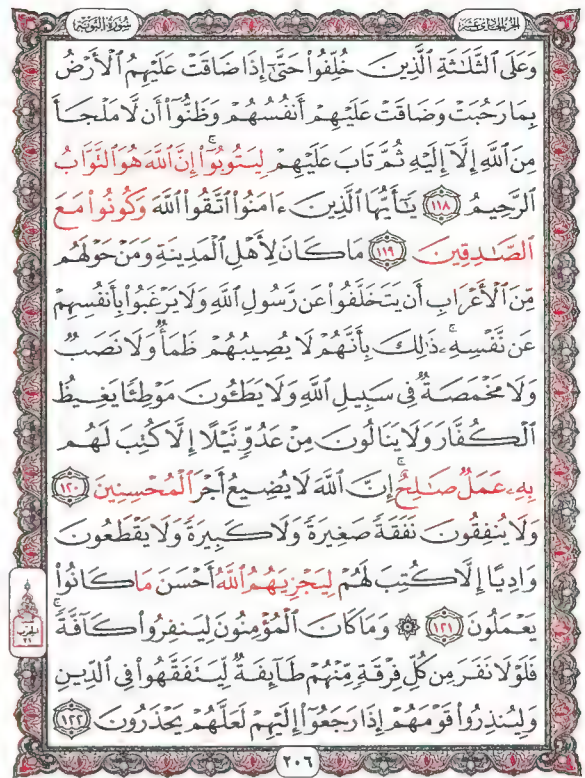 الجزء الحادي عشر
سُورَةُ التَّوْبَةِ
وَعَلَى ٱلثَّلَٰثَةِ ٱلَّذِينَ خُلِّفُوا۟ حَتَّىٰٓ إِذَا ضَاقَتْ عَلَيْهِمُ ٱلْأَرْضُ
بِمَا رَحُبَتْ وَضَاقَتْ عَلَيْهِمْ أَنفُسُهُمْ وَظَنُّوٓا۟ أَن لَّا مَلْجَأَ
مِنَ ٱللَّهِ إِلَّآ إِلَيْهِ ثُمَّ تَابَ عَلَيْهِمْ لِيَتُوبُوٓا۟ ۚ إِنَّ ٱللَّهَ هُوَ ٱلتَّوَّابُ
ٱلرَّحِيمُ ١١٨ يَٰٓأَيُّهَا ٱلَّذِينَ ءَامَنُوا۟ ٱتَّقُوا۟ ٱللَّهَ وَكُونُوا۟ مَعَ
ٱلصَّٰدِقِينَ ١١٩ مَا كَانَ لِأَهْلِ ٱلْمَدِينَةِ وَمَنْ حَوْلَهُم
مِّنَ ٱلْأَعْرَابِ أَن يَتَخَلَّفُوا۟ عَن رَّسُولِ ٱللَّهِ وَلَا يَرْغَبُوا۟ بِأَنفُسِهِمْ
عَن نَّفْسِهِۦ ۚ ذَٰلِكَ بِأَنَّهُمْ لَا يُصِيبُهُمْ ظَمَأٌ وَلَا نَصَبٌ
وَلَا مَخْمَصَةٌ فِى سَبِيلِ ٱللَّهِ وَلَا يَطَـُٔونَ مَوْطِئًا يَغِيظُ
ٱلْكُفَّارَ وَلَا يَنَالُونَ مِنْ عَدُوٍّ نَّيْلًا إِلَّا كُتِبَ لَهُم
بِهِۦ عَمَلٌ صَٰلِحٌ ۚ إِنَّ ٱللَّهَ لَا يُضِيعُ أَجْرَ ٱلْمُحْسِنِينَ ١٢٠
وَلَا يُنفِقُونَ نَفَقَةً صَغِيرَةً وَلَا كَبِيرَةً وَلَا يَقْطَعُونَ
وَادِيًا إِلَّا كُتِبَ لَهُمْ لِيَجْزِيَهُمُ ٱللَّهُ أَحْسَنَ مَا كَانُوا۟
يَعْمَلُونَ ١٢١ ۞ وَمَا كَانَ ٱلْمُؤْمِنُونَ لِيَنفِرُوا۟ كَآفَّةً ۚ
فَلَوْلَا نَفَرَ مِن كُلِّ فِرْقَةٍ مِّنْهُمْ طَآئِفَةٌ لِّيَتَفَقَّهُوا۟ فِى ٱلدِّينِ
وَلِيُنذِرُوا۟ قَوْمَهُمْ إِذَا رَجَعُوٓا۟ إِلَيْهِمْ لَعَلَّهُمْ يَحْذَرُونَ ١٢٢
الحزب
٢١
٢٠٦